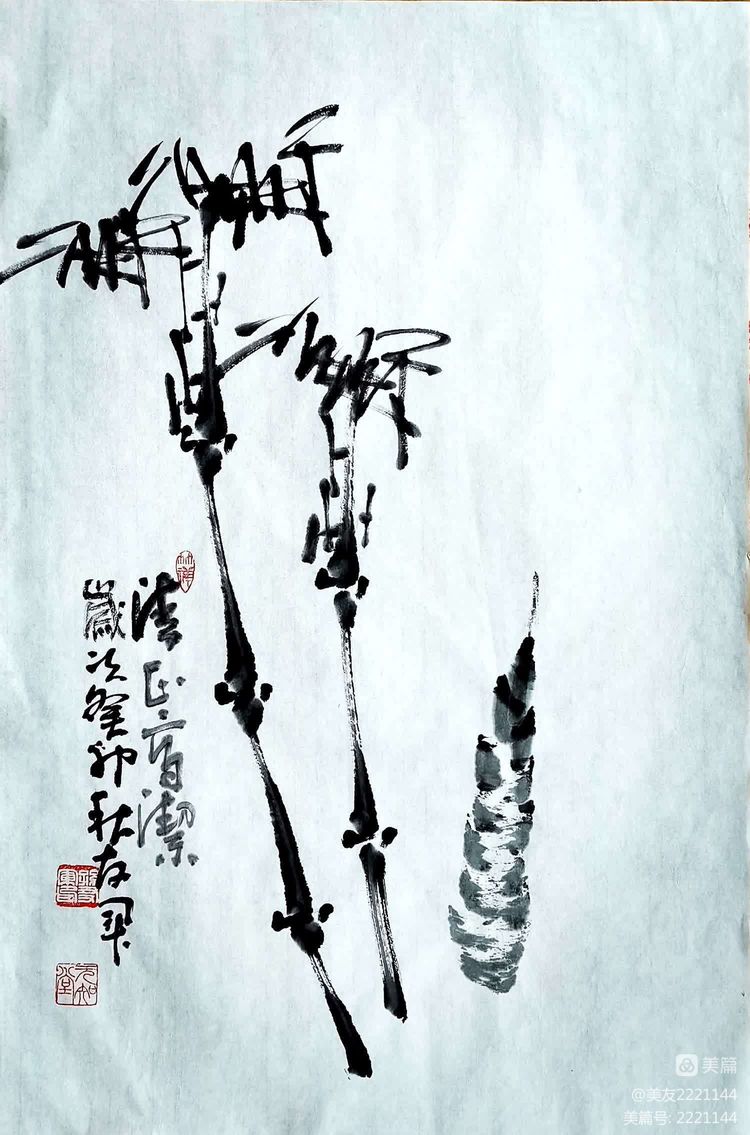 清正高潔
歲次癸卯秋
美篇
@美友2221144
美篇号: 2221144